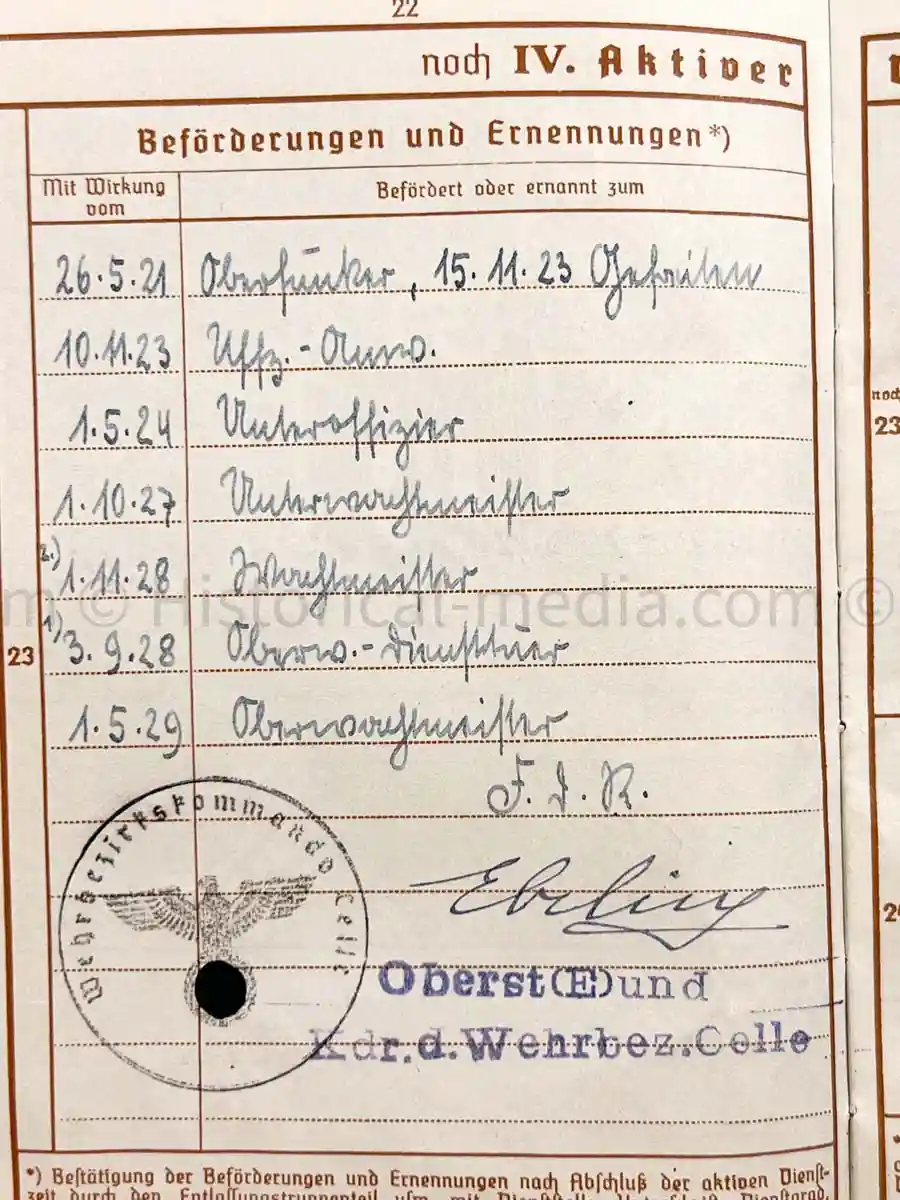 22
noch IV. Aktiver
Beförderungen und Ernennungen*)
Mit Wirkung vom
Befördert oder ernannt zum
26.5.21 Oberfunker, 15.11.23 Gefreiten
10.11.23 Uffz.-Anw.
1.5.24 Unteroffizier
1.10.27 Unterwachtmeister
2.) 1.11.28 Wachtmeister
1) 3.9.28 Oberw.-Diensttuer
23
1.5.29 Oberwachtmeister
F.d.R.
Wehrbezirkskommando Celle
Ebeling
Oberst(E)und
Kdr.d.Wehrbez.Celle
*) Bestätigung der Beförderungen und Ernennungen nach Abschluß der aktiven Dienst-
zeit durch den Entlassungstruppenteil usw. mit
noch
23
© Historical-media.com ©